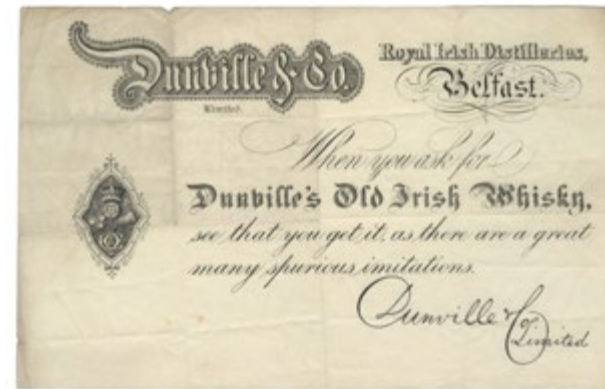 Dunville & Co.
Limited.
Royal Irish Distilleries,
Belfast.
When you ask for
Dunville's Old Irish Whisky,
see that you get it, as there are a great
many spurious imitations.
Dunville & Co
Limited